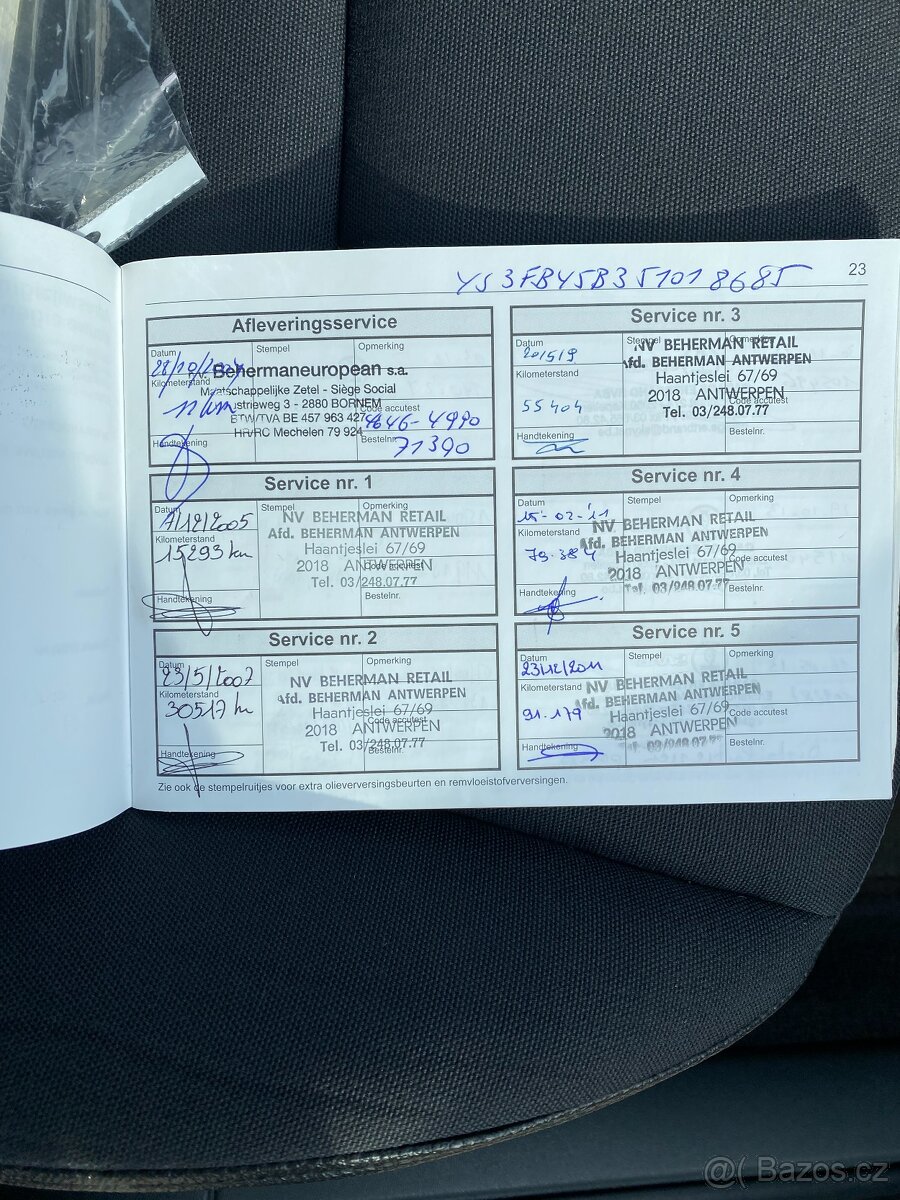 YS3FB45B351018685
23
Afleveringsservice
Datum
Stempel
Opmerking
28/10/2004
Behermaneuropean s.a.
Kilometerstand
Maatschappelijke Zetel - Siège Social
11 km
ustrieweg 3 - 2880 BORNEM
Code accutest
BTW/TVA BE 457 963 427
4646-4990
HR/RC Mechelen 79 924
Handtekening
Bestelnr.
71390
Service nr. 1
Datum
Stempel
Opmerking
NV BEHERMAN RETAIL
Afd. BEHERMAN ANTWERPEN
Kilometerstand
15293 km
Haantjeslei 67/69
2018 ANTWERPEN
Code accutest
Tel. 03/248.07.77
Handtekening
Bestelnr.
Service nr. 2
Datum
Stempel
Opmerking
23/5/2007
NV BEHERMAN RETAIL
Kilometerstand
Afd. BEHERMAN ANTWERPEN
30517 km
Haantjeslei 67/69
Code accutest
2018 ANTWERPEN
Tel. 03/248.07.77
Handtekening
Bestelnr.
Service nr. 3
Datum
Stempel
Opmerking
20/5/9
NV BEHERMAN RETAIL
Afd. BEHERMAN ANTWERPEN
Kilometerstand
Haantjeslei 67/69
2018 ANTWERPEN
Code accutest
55404
Tel. 03/248.07.77
Handtekening
Bestelnr.
Service nr. 4
Datum
Stempel
Opmerking
15-02-'11
NV BEHERMAN RETAIL
Kilometerstand
Afd. BEHERMAN ANTWERPEN
79.384
Haantjeslei 67/69
Code accutest
2018 ANTWERPEN
Tel. 03/248.07.77
Handtekening
Bestelnr.
Service nr. 5
Datum
Stempel
Opmerking
23/12/2011
Kilometerstand
NV BEHERMAN RETAIL
Afd. BEHERMAN ANTWERPEN
91.179
Haantjeslei 67/69
Code accutest
2018 ANTWERPEN
Tel. 03/248.07.77
Handtekening
Bestelnr.
Zie ook de stempelruitjes voor extra olieverversingsbeurten en remvloeistofverversingen.
@( Bazos.cz